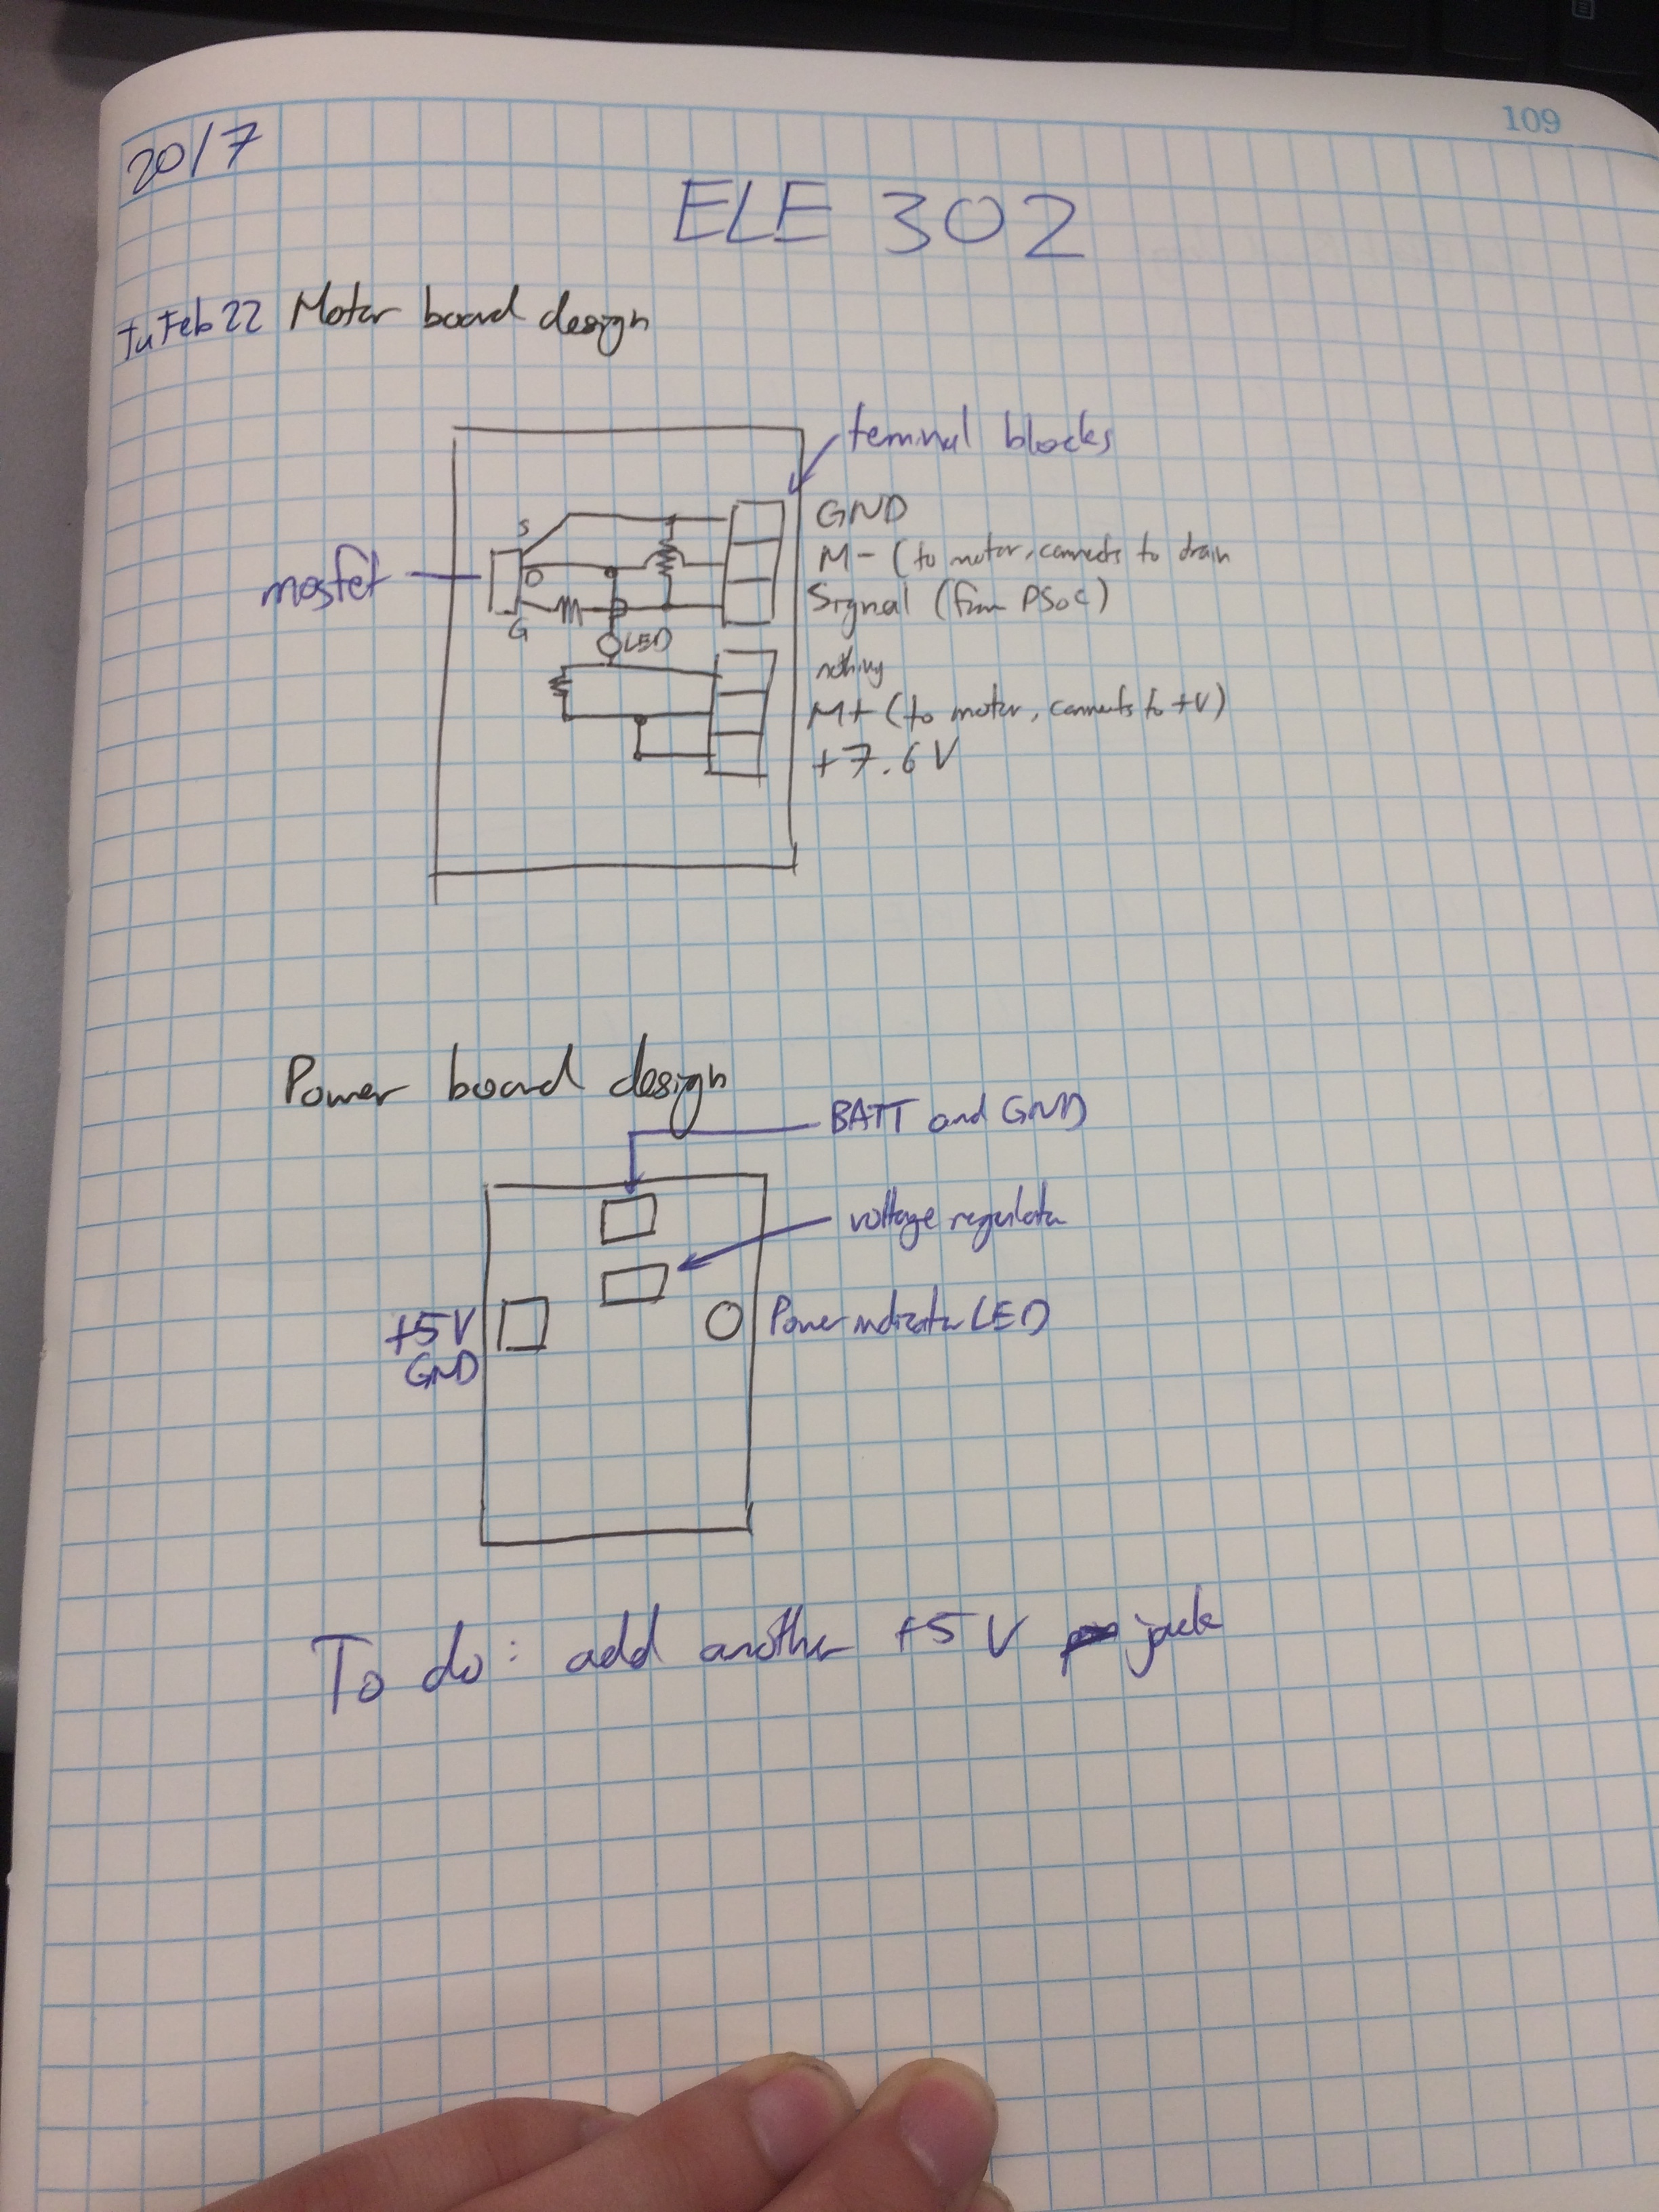 109
2017
ELE 302
Tu Feb 22 Motor board design
teminal blocks
S
GND
mosfet
D
M- (to motor, connects to drain
Signal (from PSoC)
G
LED
nothing
M+ (to motor, connects to +V)
+7.6V
Power board design
BATT and GND
voltage regulator
+5V
GND
Power indicator LED
To do: add another +5V jack